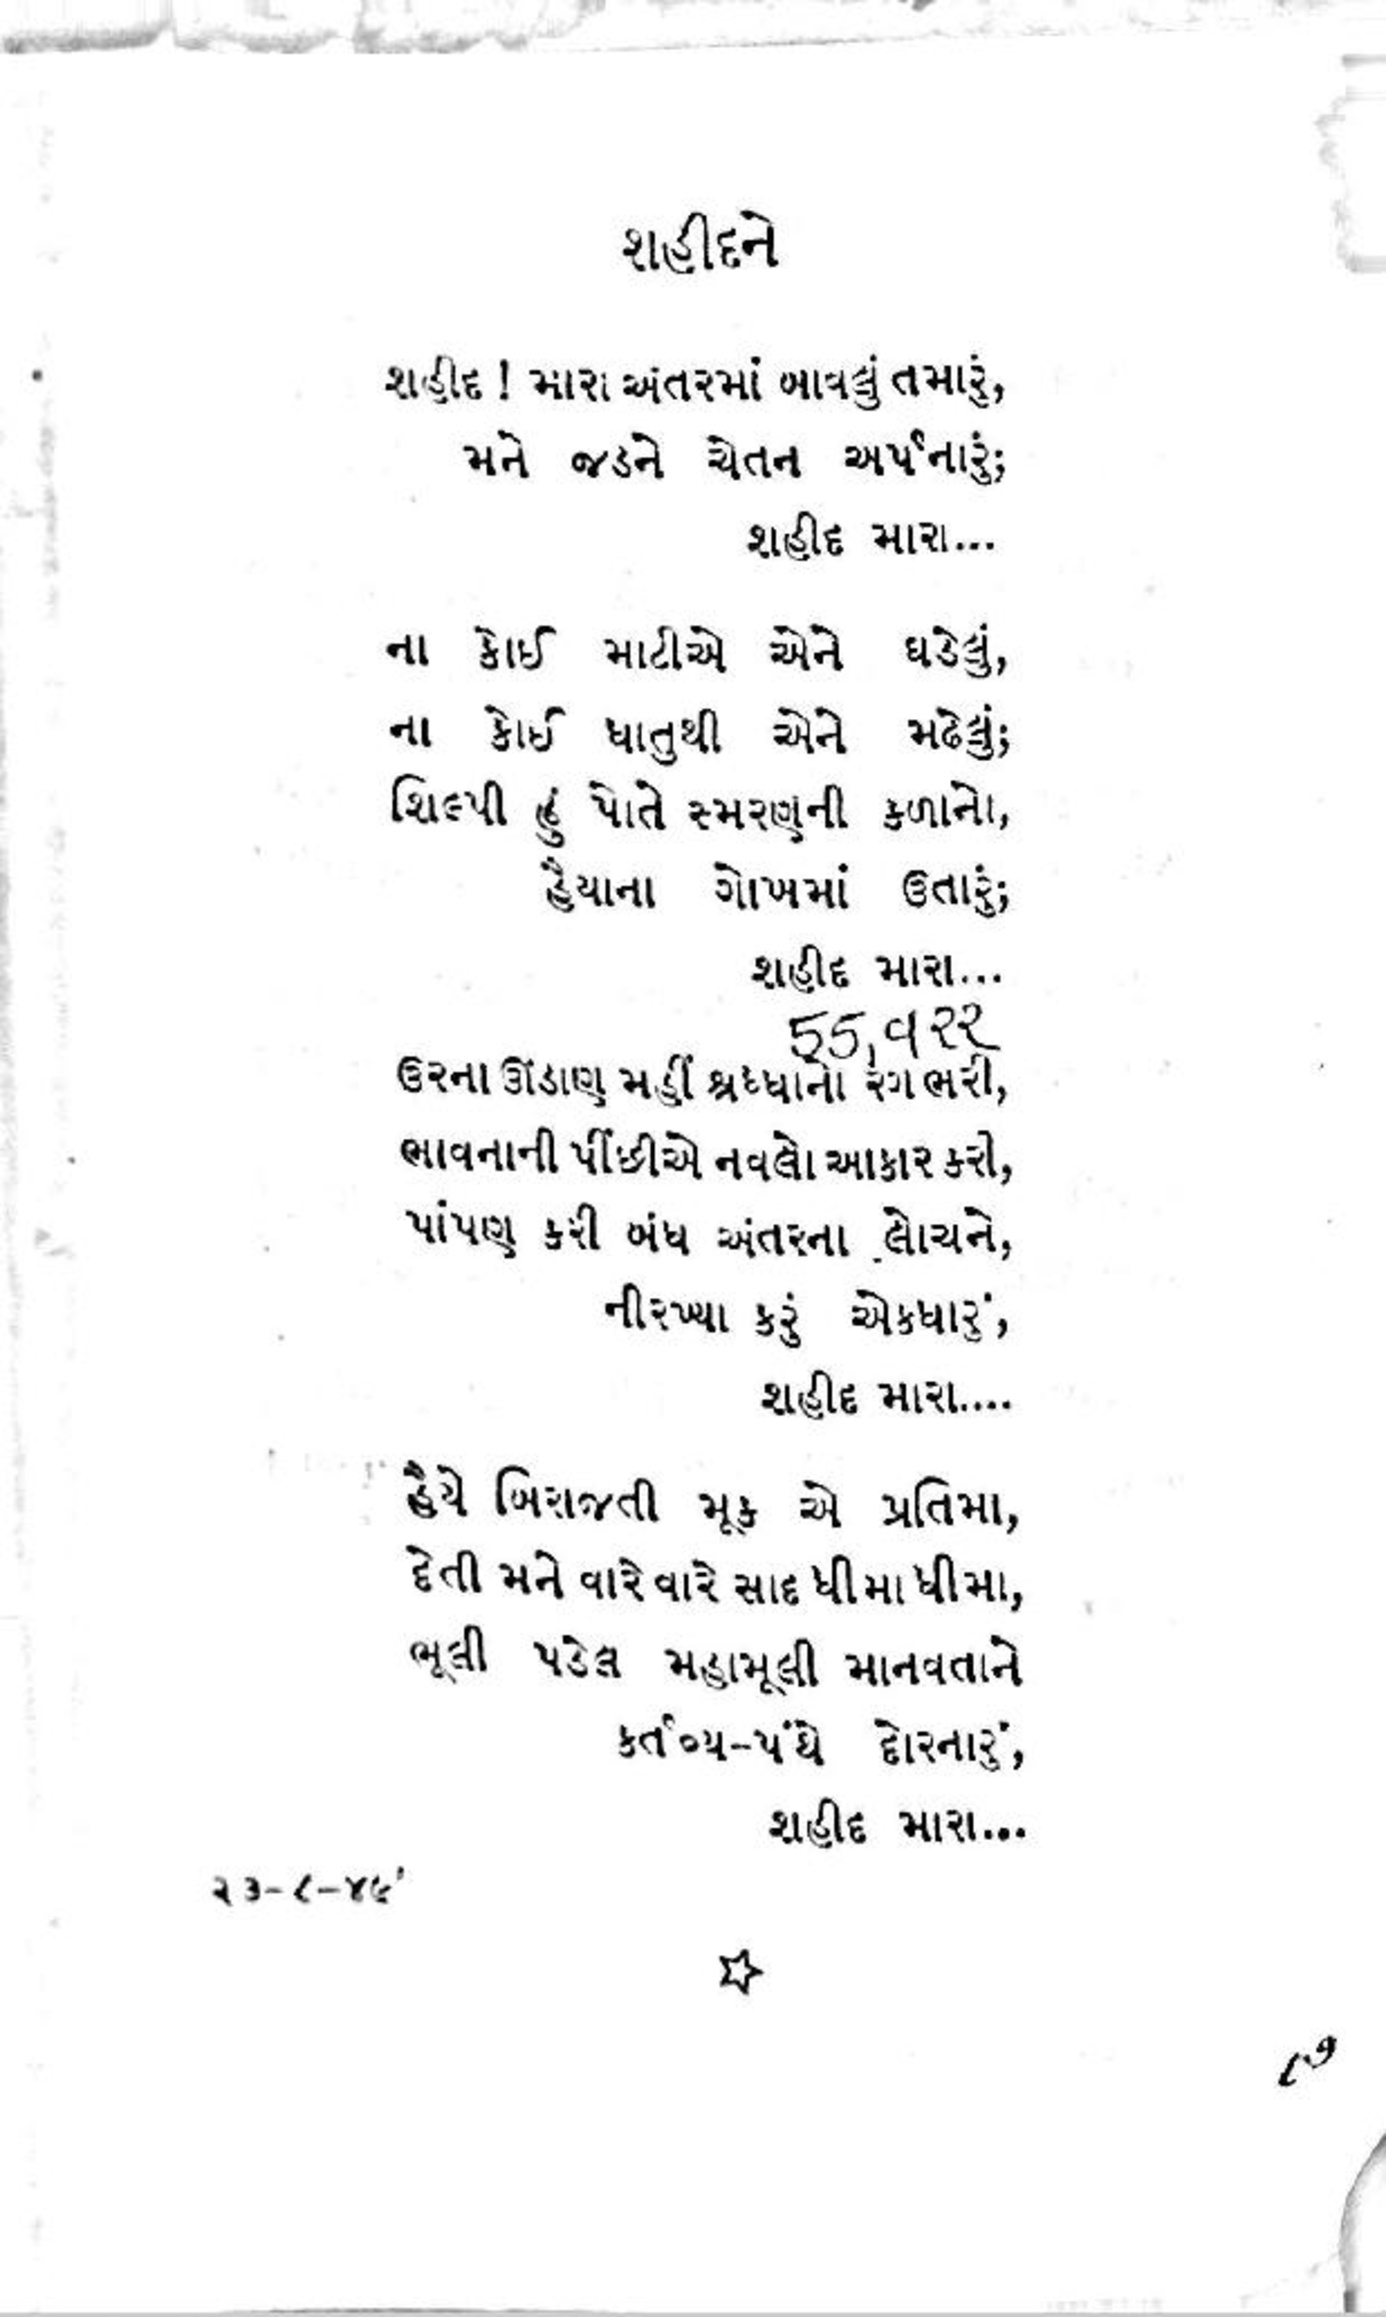 શહીદને
શહીદ ! મારા અંતરમાં બાવલું તમારું,
મને જડને ચેતન અર્પનારું;
શહીદ મારા...
ના કોઈ માટીએ એને ઘડેલું,
ના કોઈ ધાતુથી એને મઢેલું;
શિલ્પી હું પોતે સ્મરણની કળાનો,
હૈયાના ગોખમાં ઉતારું;
શહીદ મારા...
55,૧૨૨
ઉરના ઊંડાણ મહીં શ્રધ્ધાનો રંગ ભરી,
ભાવનાની પીંછીએ નવલો આકાર કરી,
પાંપણ કરી બંધ અંતરના લોચને,
નીરખ્યા કરું એકધારું,
શહીદ મારા....
હૈયે બિરાજતી મૂક એ પ્રતિમા,
દેતી મને વારે વારે સાદ ધીમા ધીમા,
ભૂલી પડેલ મહામૂલી માનવતાને
કર્તવ્ય-પંથે દોરનારું,
શહીદ મારા...
૨૩-૮-૪૬'
૮૭